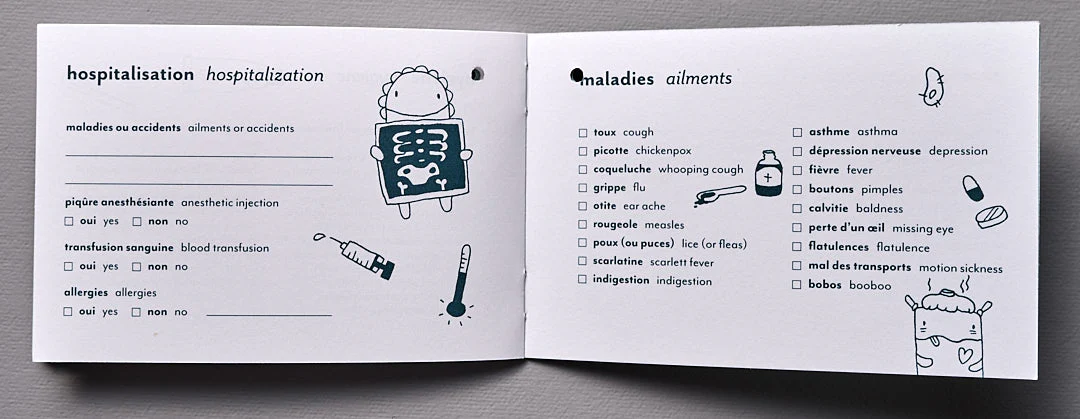 hospitalisation hospitalization
maladies ou accidents ailments or accidents
piqûre anesthésiante anesthetic injection
oui yes non no
transfusion sanguine blood transfusion
oui yes non no
allergies allergies
oui yes non no
maladies ailments
toux cough
picotte chickenpox
coqueluche whooping cough
grippe flu
otite ear ache
rougeole measles
poux (ou puces) lice (or fleas)
scarlatine scarlett fever
indigestion indigestion
asthme asthma
dépression nerveuse depression
fièvre fever
boutons pimples
calvitie baldness
perte d'un œil missing eye
flatulences flatulence
mal des transports motion sickness
bobos booboo